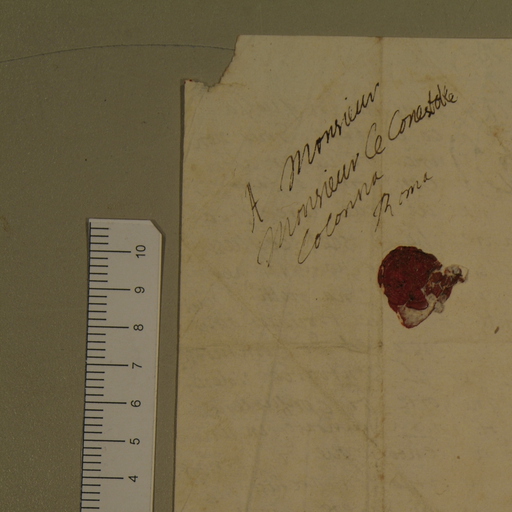 A Monsieur
Monsieur Le Conestable
Colonna
Roma
10
9
8
7
6
5
4